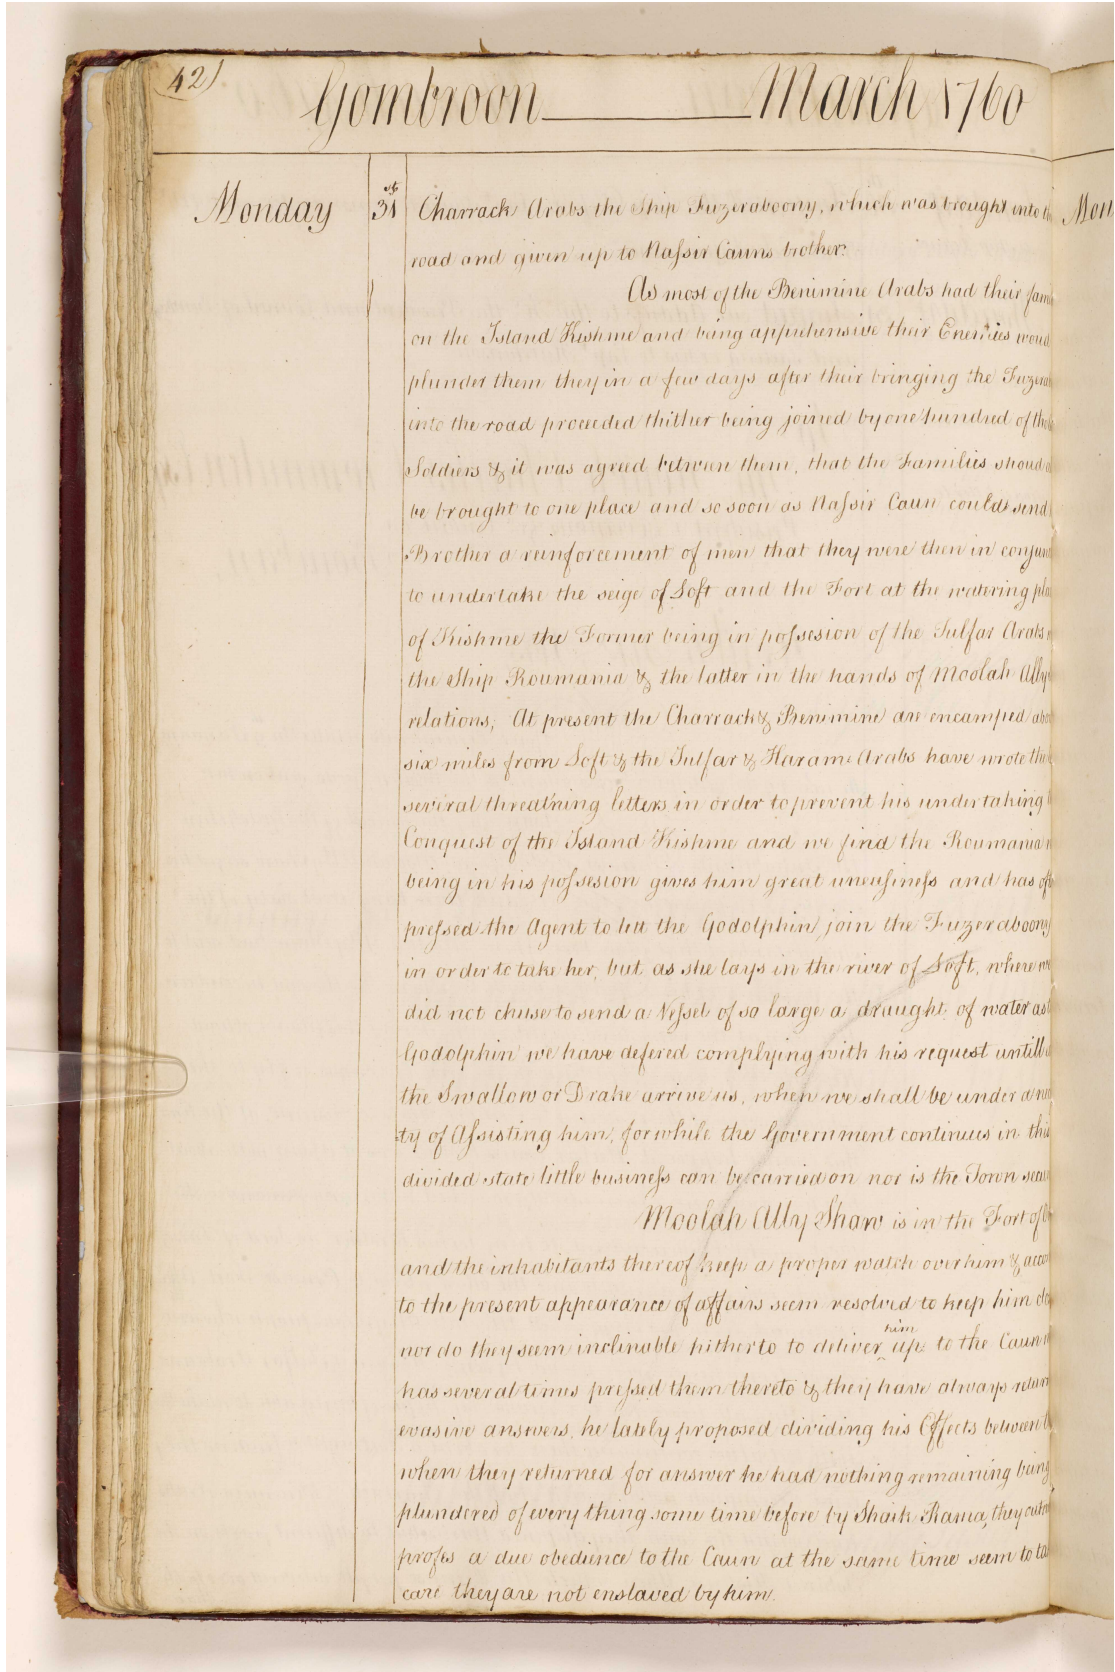 42)
Gombroon March 1760
Monday 31st Charrack Arabs the Ship Fuzeraboony, which was brought into
road and given up to Nassir Cauns brother.
As most of the Benimine Arabs had their
on the Island Kishme and being apprehensive their Enemies woud
plunder them they in a few days after their bringing the
into the road proceeded thither being joined by one hundred of
Soldiers & it was agreed between them, that the Families shoud
be brought to one place and so soon as Nassir Caun could send
Brother a reinforcement of men that they were then in
to undertake the seige of Loft and the Fort at the watering
of Kishme the Former being in possesion of the Julfar Arabs
the Ship Roumania & the latter in the hands of Moolah Ally
relations; At present the Charrack & Benimine are encamped
six miles from Loft & the Julfar & Harame Arabs have wrote
several threat'ning letters in order to prevent his undertaking
Conquest of the Island Kishme and we find the Roumania
being in his possesion gives him great uneasiness and has
pressed the Agent to lett the Godolphin join the Fuzeraboony
in order to take her, but as she lays in the river of Loft, where we
did not chuse to send a Vessel of so large a draught of water as
Godolphin we have defered complying with his request untill
the Swallow or Drake arrive us, when we shall be under a
ty of Assisting him, for while the Government continues in this
divided state little business can be carried on nor is the Town
Moolah Ally Shaw is in the Fort of
and the inhabitants thereof keep a proper watch over him &
to the present appearance of affairs seem resolved to keep him
nor do they seem inclinable hitherto to deliver him up to the Caun
has several times pressed them thereto & they have always
evasive answers, he lately proposed dividing his Effects between
when they returned for answer he had nothing remaining being
plundered of every thing some time before by Shaik Rama, they
profess a due obedience to the Caun at the same time seem to
care they are not enslaved by him.